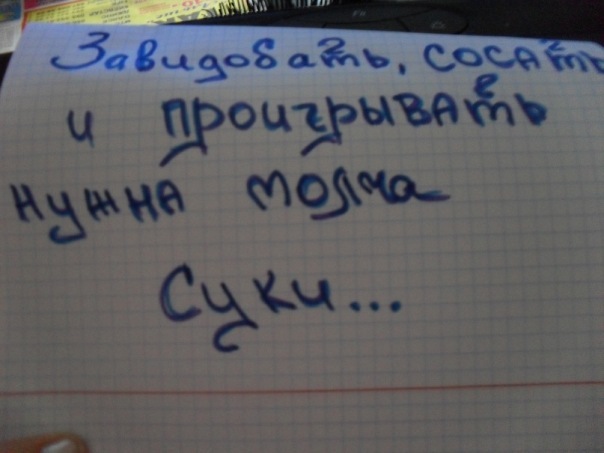 Завидовать, сосать
и проигрывать
нужна молча
Суки...